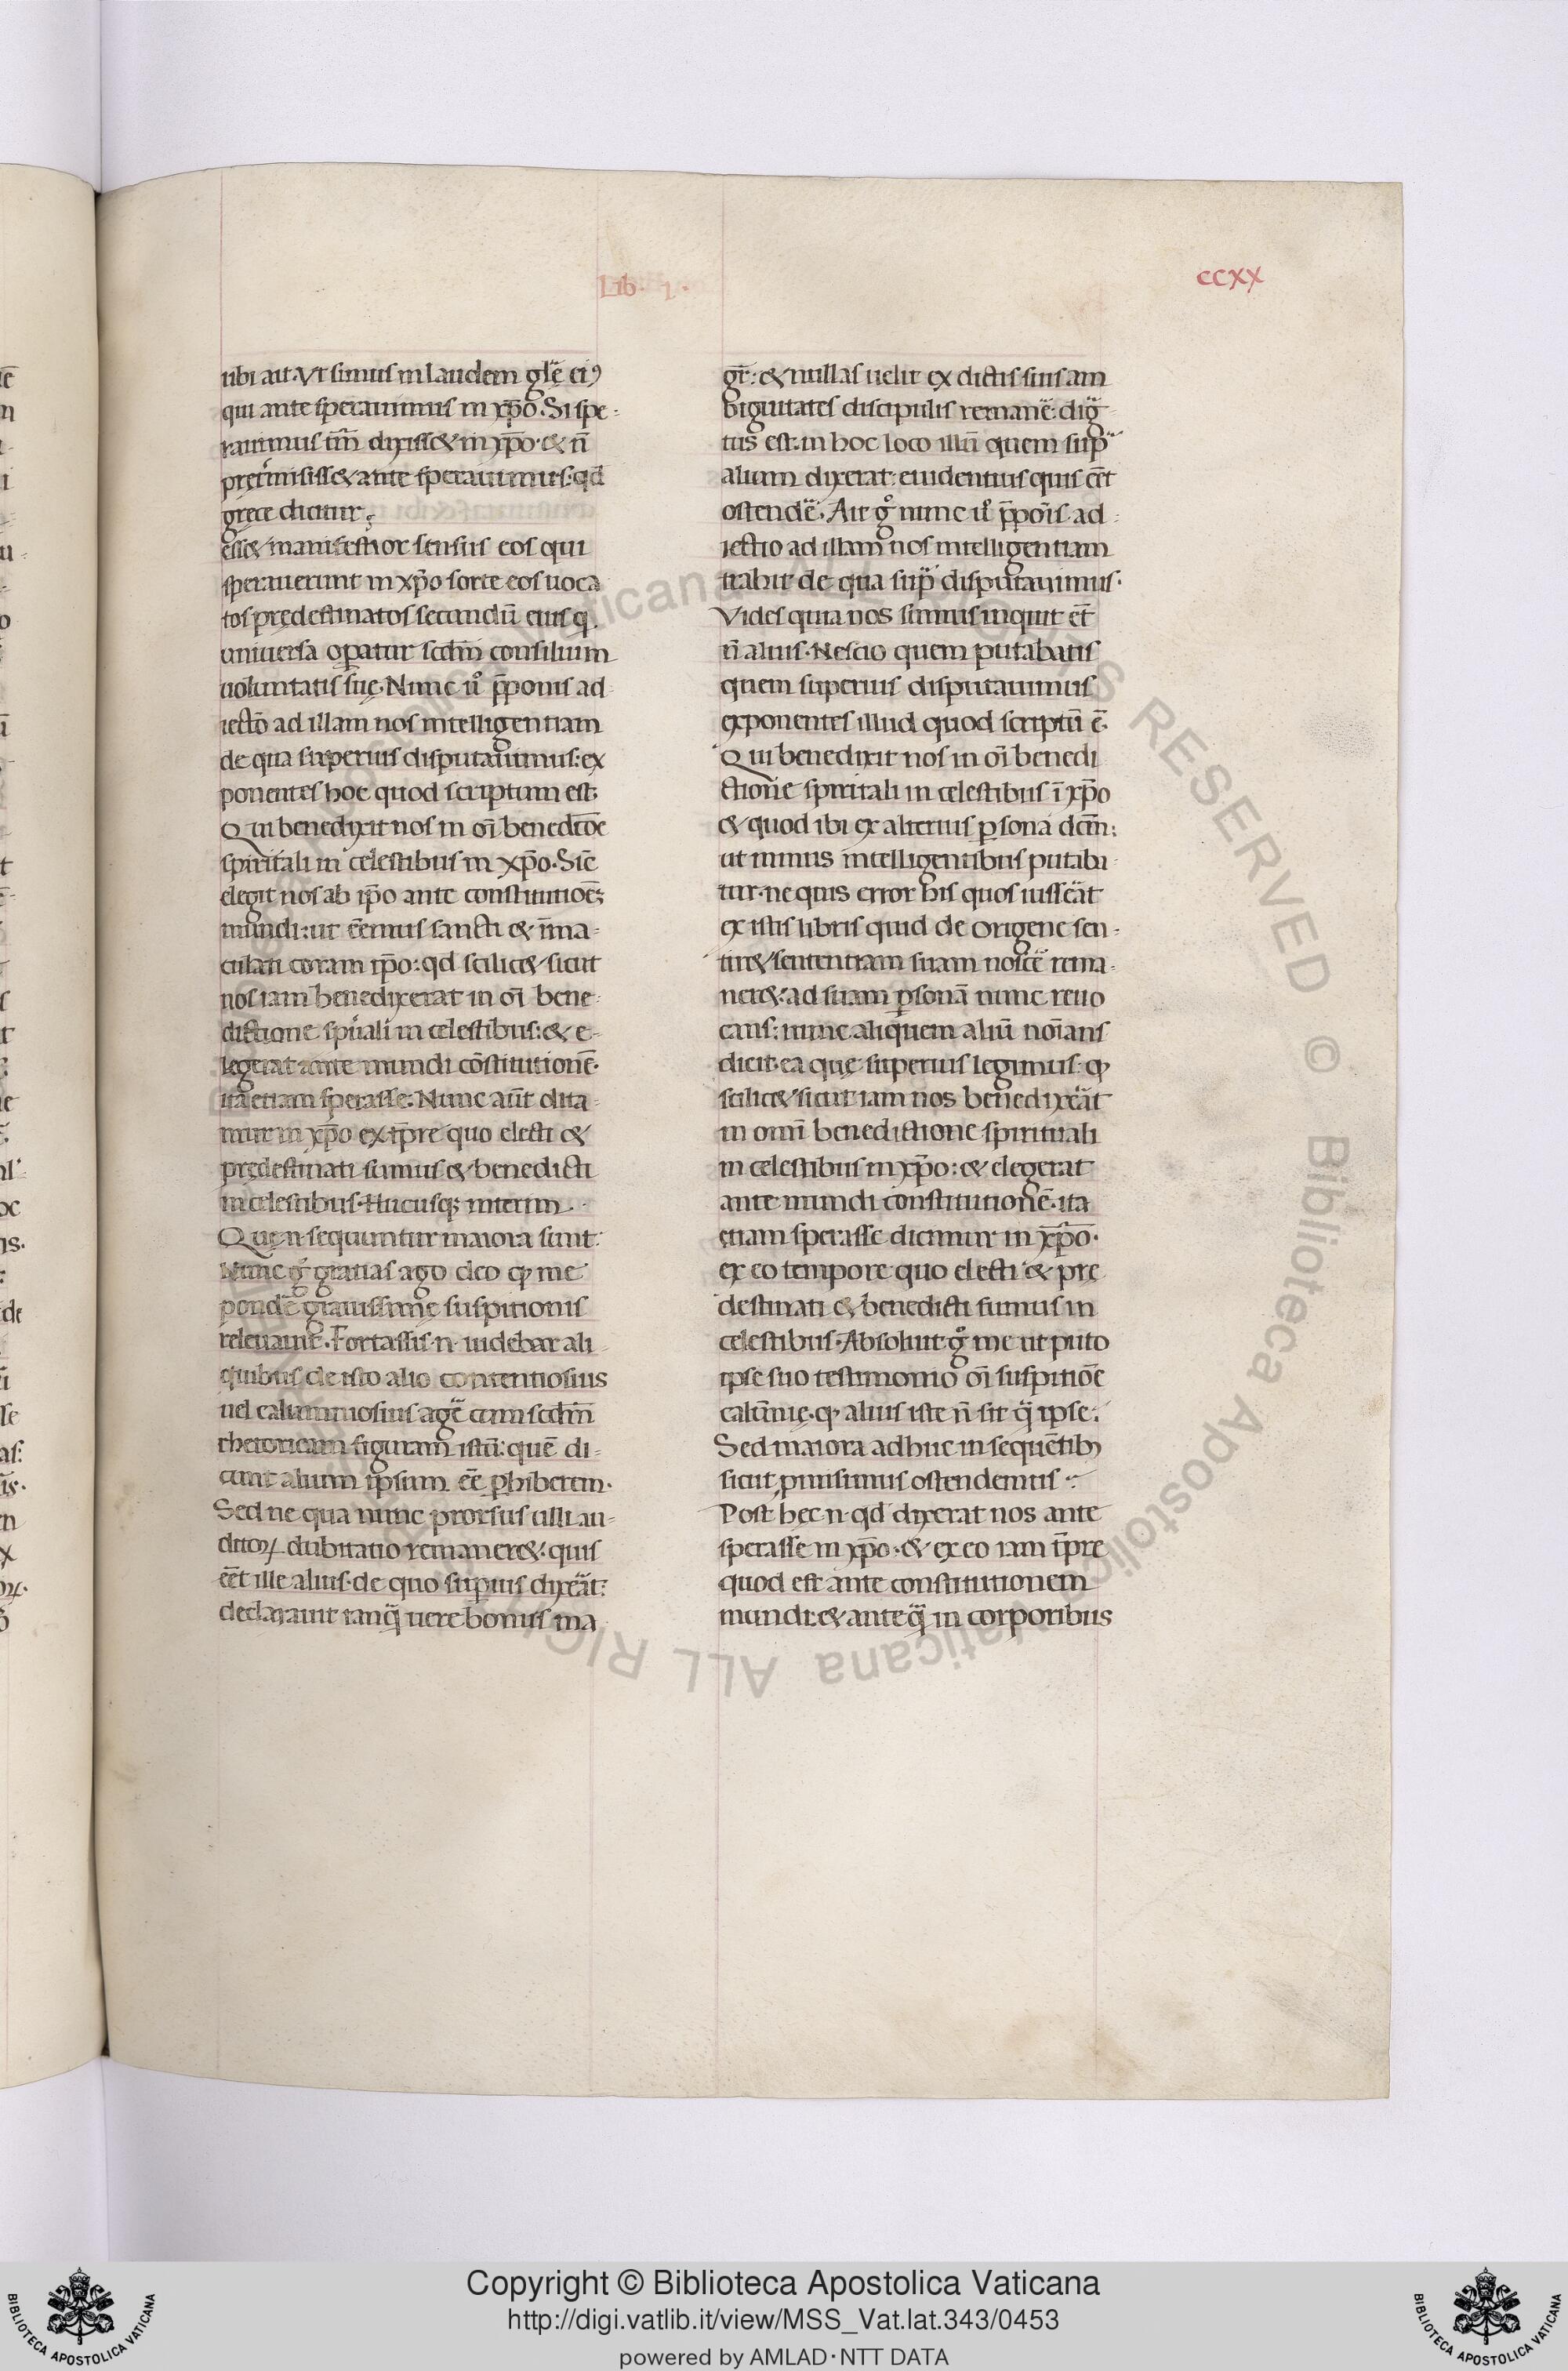 Lib. 1.
CCXX
ubi ait. Vt simus in laudem glę̄ ei⁹
qui ante sperauimus in xp̄o. Si spe-
rauimus tm̄ dixiss& in xp̄o. & n̄
pręt̾misiss& ante sperauimus: qd̄
gręce dicitur
ess& manifestior sensus eos qui
sperauerunt in xp̄o sorte eos uoca
tos prędestinatos secundū eius q
uniuersa op̱atur scd̄m consilium
uoluntatis suę. Nunc u͛o p̄ponis ad
iectō ad illam nos intelligentiam
de qua superius disputauimus: ex
ponentes hoc quod scriptum est.
Qui benedixit nos in oī bened̄c̄oe
spiritali in celestibus in xp̄o. Sic̄
elegit nos ab ip̄o ante constitutioē;
mundi: ut ēēmus sancti & īma-
culati coram ip̄o: qd scilic& sicut
nos iam benedixerat in oī bene-
dictione spūali in celestibus: & e-
legerat ante mundi cōstitutionē.
ita etiam sperasse. Nunc aūt dita-
mur in xp̄o ex tp̄re quo electi &
prędestinati sumus & benedicti
in celestibus. Hucusq; interim.
Quę n̄ sequuntur maiora sunt.
Nunc g͛ gratias ago deo qꝫ me
pondē grauissimę suspitionis
releuauit. Fortassis .n. uidebar ali-
quibus de isto alio contentiosius
uel calumniosius agē cum scd̄m
rhetoricam figuram istū: quē di-
cunt alium ipsum ēē p̱hiberem.
Sed ne qua nunc prorsus ulli au-
ditoꝝ dubitatio remaner&. quis
ēēt ille alius. de quo sup̱ius dixāt:
declarauit tanq̄ uere bonus ma
gr̄: & nullas uelit ex dictis suis am
biguitates discipulis remanē: dig̾-
tus est. in hoc loco illū quem sup̾
alium dixerat: euidentius quis ēēt
ostendē. Ait g͛ nunc u͛o p̄pōis ad-
iectio ad illam nos intelligentiam
trahit de qua sup̾ disputauimus.
Vides quia nos sumus inquit ēt
n̄ alius. Nescio quem putabatis
quem superius disputauimus
exponentes illud quod scriptū ē.
Qui benedixit nos in oī benedi
ctione spiritali in celestibus ī xp̄o
& quod ibi ex alterius p̱sona dc̄m:
ut minus intelligentibus putabi-
tur. ne quis error his quos iussēat
ex istis libris quid de origene sen-
tir& sententiam suam noscē rema-
ner&. ad suam p̱sonā nunc reuo
cans: nunc aliquem aliū noīans
dicit. ea quę superius legimus: qꝫ
scilic& sicut iam nos benedixāt
in omni benedictione spirituali
in celestibus in xp̄o: & elegerat
ante mundi constitutionē. ita
etiam sperasse dicimur in xp̄o.
ex eo tempore quo electi & prę
destinati & benedicti sumus in
celestibus. Absoluit g͛ me ut puto
ipse suo testimonio oī suspitiōe
calūnię. qꝫ alius iste n̄ sit q̄ ipse.
Sed maiora adhuc in sequētib⁹
sicut p̱misimus ostendemus.
Post hęc .n. qd dixerat nos ante
sperasse in xp̄o. & ex eo iam tp̄re
quod est ante constitutionem
mundi: & anteq̄ in corporibus
Copyright © Biblioteca Apostolica Vaticana
http://digi.vatlib.it/view/MSS_Vat.lat.343/0453
powered by AMLAD·NTT DATA